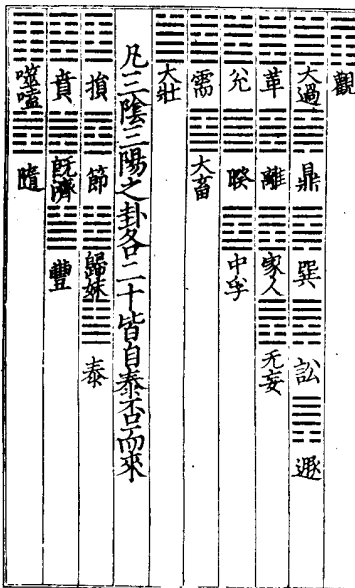 觀
大過 鼎 巽 訟 遯
革 離 家人 无妄
兌 睽 中孚
需 大畜
大壯
凡三陰三陽之卦各二十皆自泰否而來
損 節 歸妹 泰
賁 旣濟 豐
噬嗑 隨